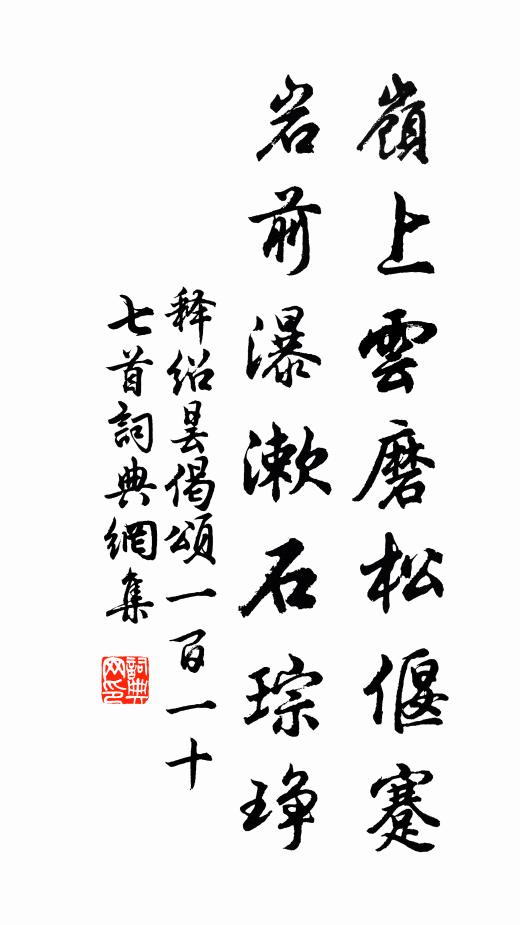 嶺上雲磨松偃蹇
岩前瀑漱石琮琤
释紹昙偈頌一百一十
七首詞典網集
詞典网印